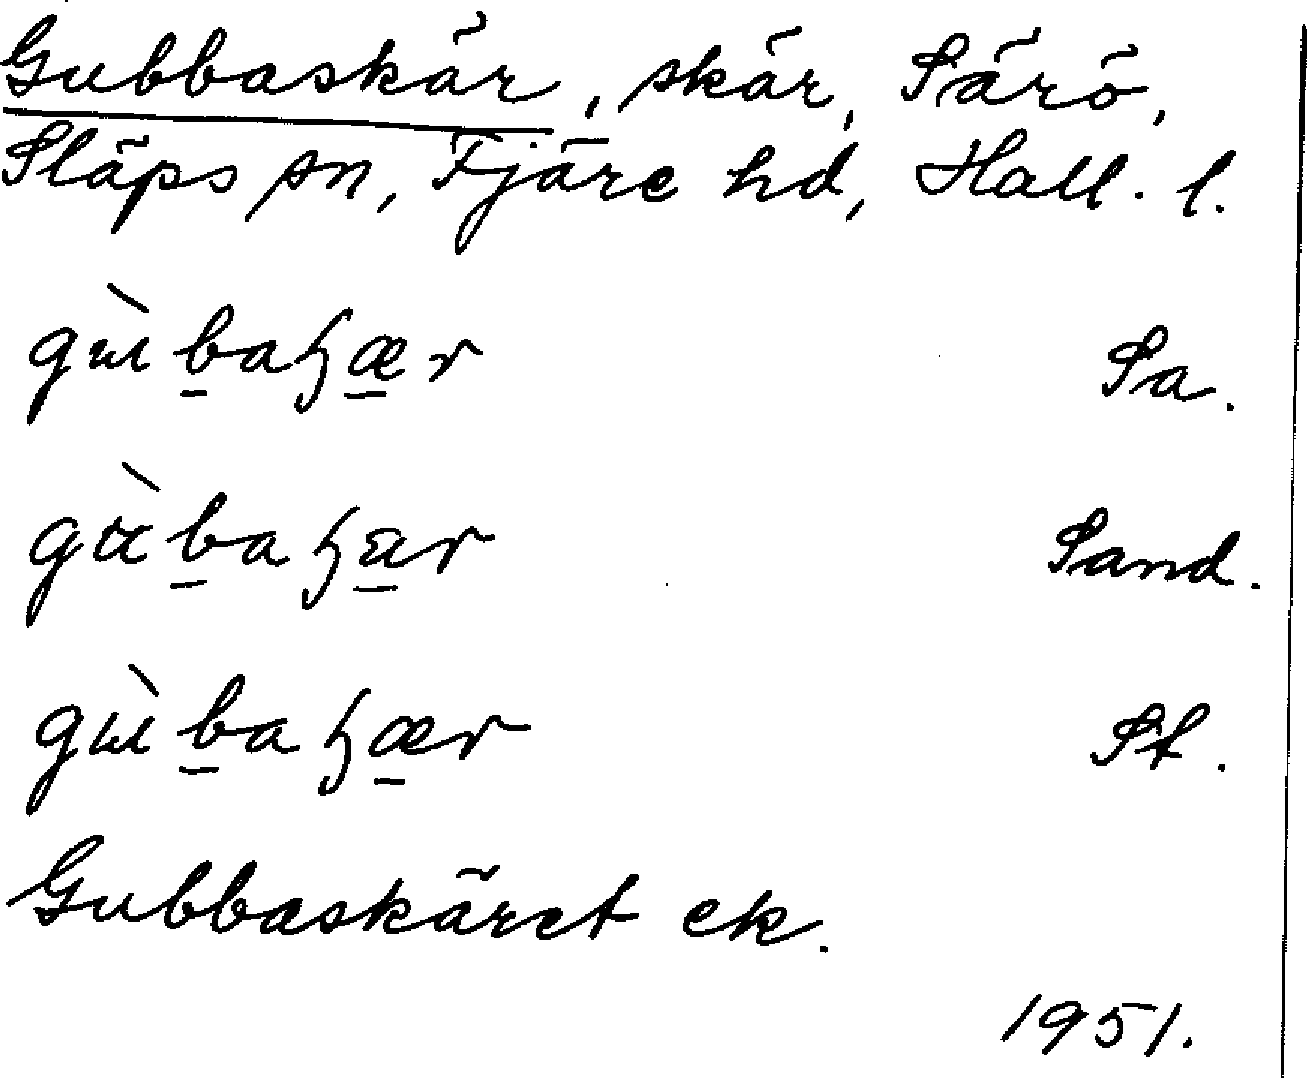 Gubbaskär, skär, Särö,
Släps sn, Fjäre hd, Hall. l.
gɯ̀b̲aɧæ̲r Sa.
gɑ̀b̲aɧa̲r Sand.
gɯ̀b̲aɧæ̲r St.
Gubbaskäret ek.
1951.